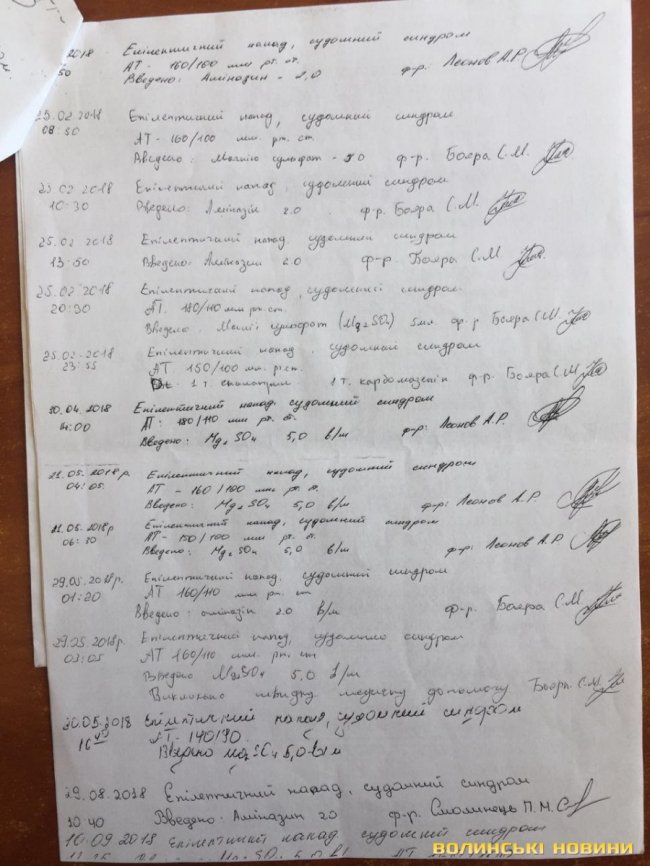 2018 Епілептичний напад, судомний синдром
АТ - 160/100 мм рт. ст.
Введено: Аміназин - 2,0 ф-р: Леонов А.Р.
25.02.2018 Епілептичний напад, судомний синдром
08:50 АТ - 160/100 мм. рт. ст.
Введено: Магнію сульфат - 5.0 ф-р. Бояра С.М.
25.02.2018 Епілептичний напад, судомний синдром
10:30 Введено: Аміназін 2.0 ф-р. Бояра С.М.
25.02.2018 Епілептичний напад. судомний синдром
13:50 Введено: Аміназин 2.0 ф-р. Бояра С.М.
25.02.2018 Епілептичний напад, судомний синдром
20:30 АТ. 180/110 мм рт. ст.
Введено. Магнії сульфат (Mg2SO4) 5мл. ф-р Бояра С.М.
25.02.2018 Епілептичний напад. судомний синдром
23:55 АТ 150/100 мм. рт. ст.
1 т. 1 т. кардомазепін ф-р. Бояра С.М.
30.04.2018 Епілептичний напад, судомний синдром
АТ: 180/110 мм рт. ст.
Введено: Mg2SO4 5,0 в/м ф-р: Леонов А.Р.
21.05.2018р. Епілептичний напад, судомний синдром
04:05. АТ - 160/100 мм. рт. ст.
Введено: Mg2SO4 5,0 в/м ф-р: Леонов А.Р.
21.05.2018р Епілептичний напад, судомний синдром
06:30 АТ - 150/100 мм. рт. ст.
Введено: Mg2SO4 5,0 в/м ф-р: Леонов А.Р.
29.05.2018р. Епілептичний напад. судомний синдром
01:20 АТ 160/110 мм. рт. ст
Введено: аміназін 2.0 в/м ф-р. Бояра С.М.
29.05.2018р. Епілептичний напад, судомний синдром
03:05 АТ 160/110 мм. рт. ст
Введено Mg2SO4 5.0 в/м
Викликано швидку медичну допомогу Бояра С.М.
30.05.2018 Епілптичний напад, судомний синдром
АТ - 140/90.
Введено Mg2SO4 5,0 в/м
29.08.2018 Епілептичний напад, судомний синдром
10:40 Введено: Аміназин 2.0 ф-р. Смолинець П.М.
10.09.2018 Епілептичний напад. судомний синдром
ВОЛИНСЬКІ НОВИНИ